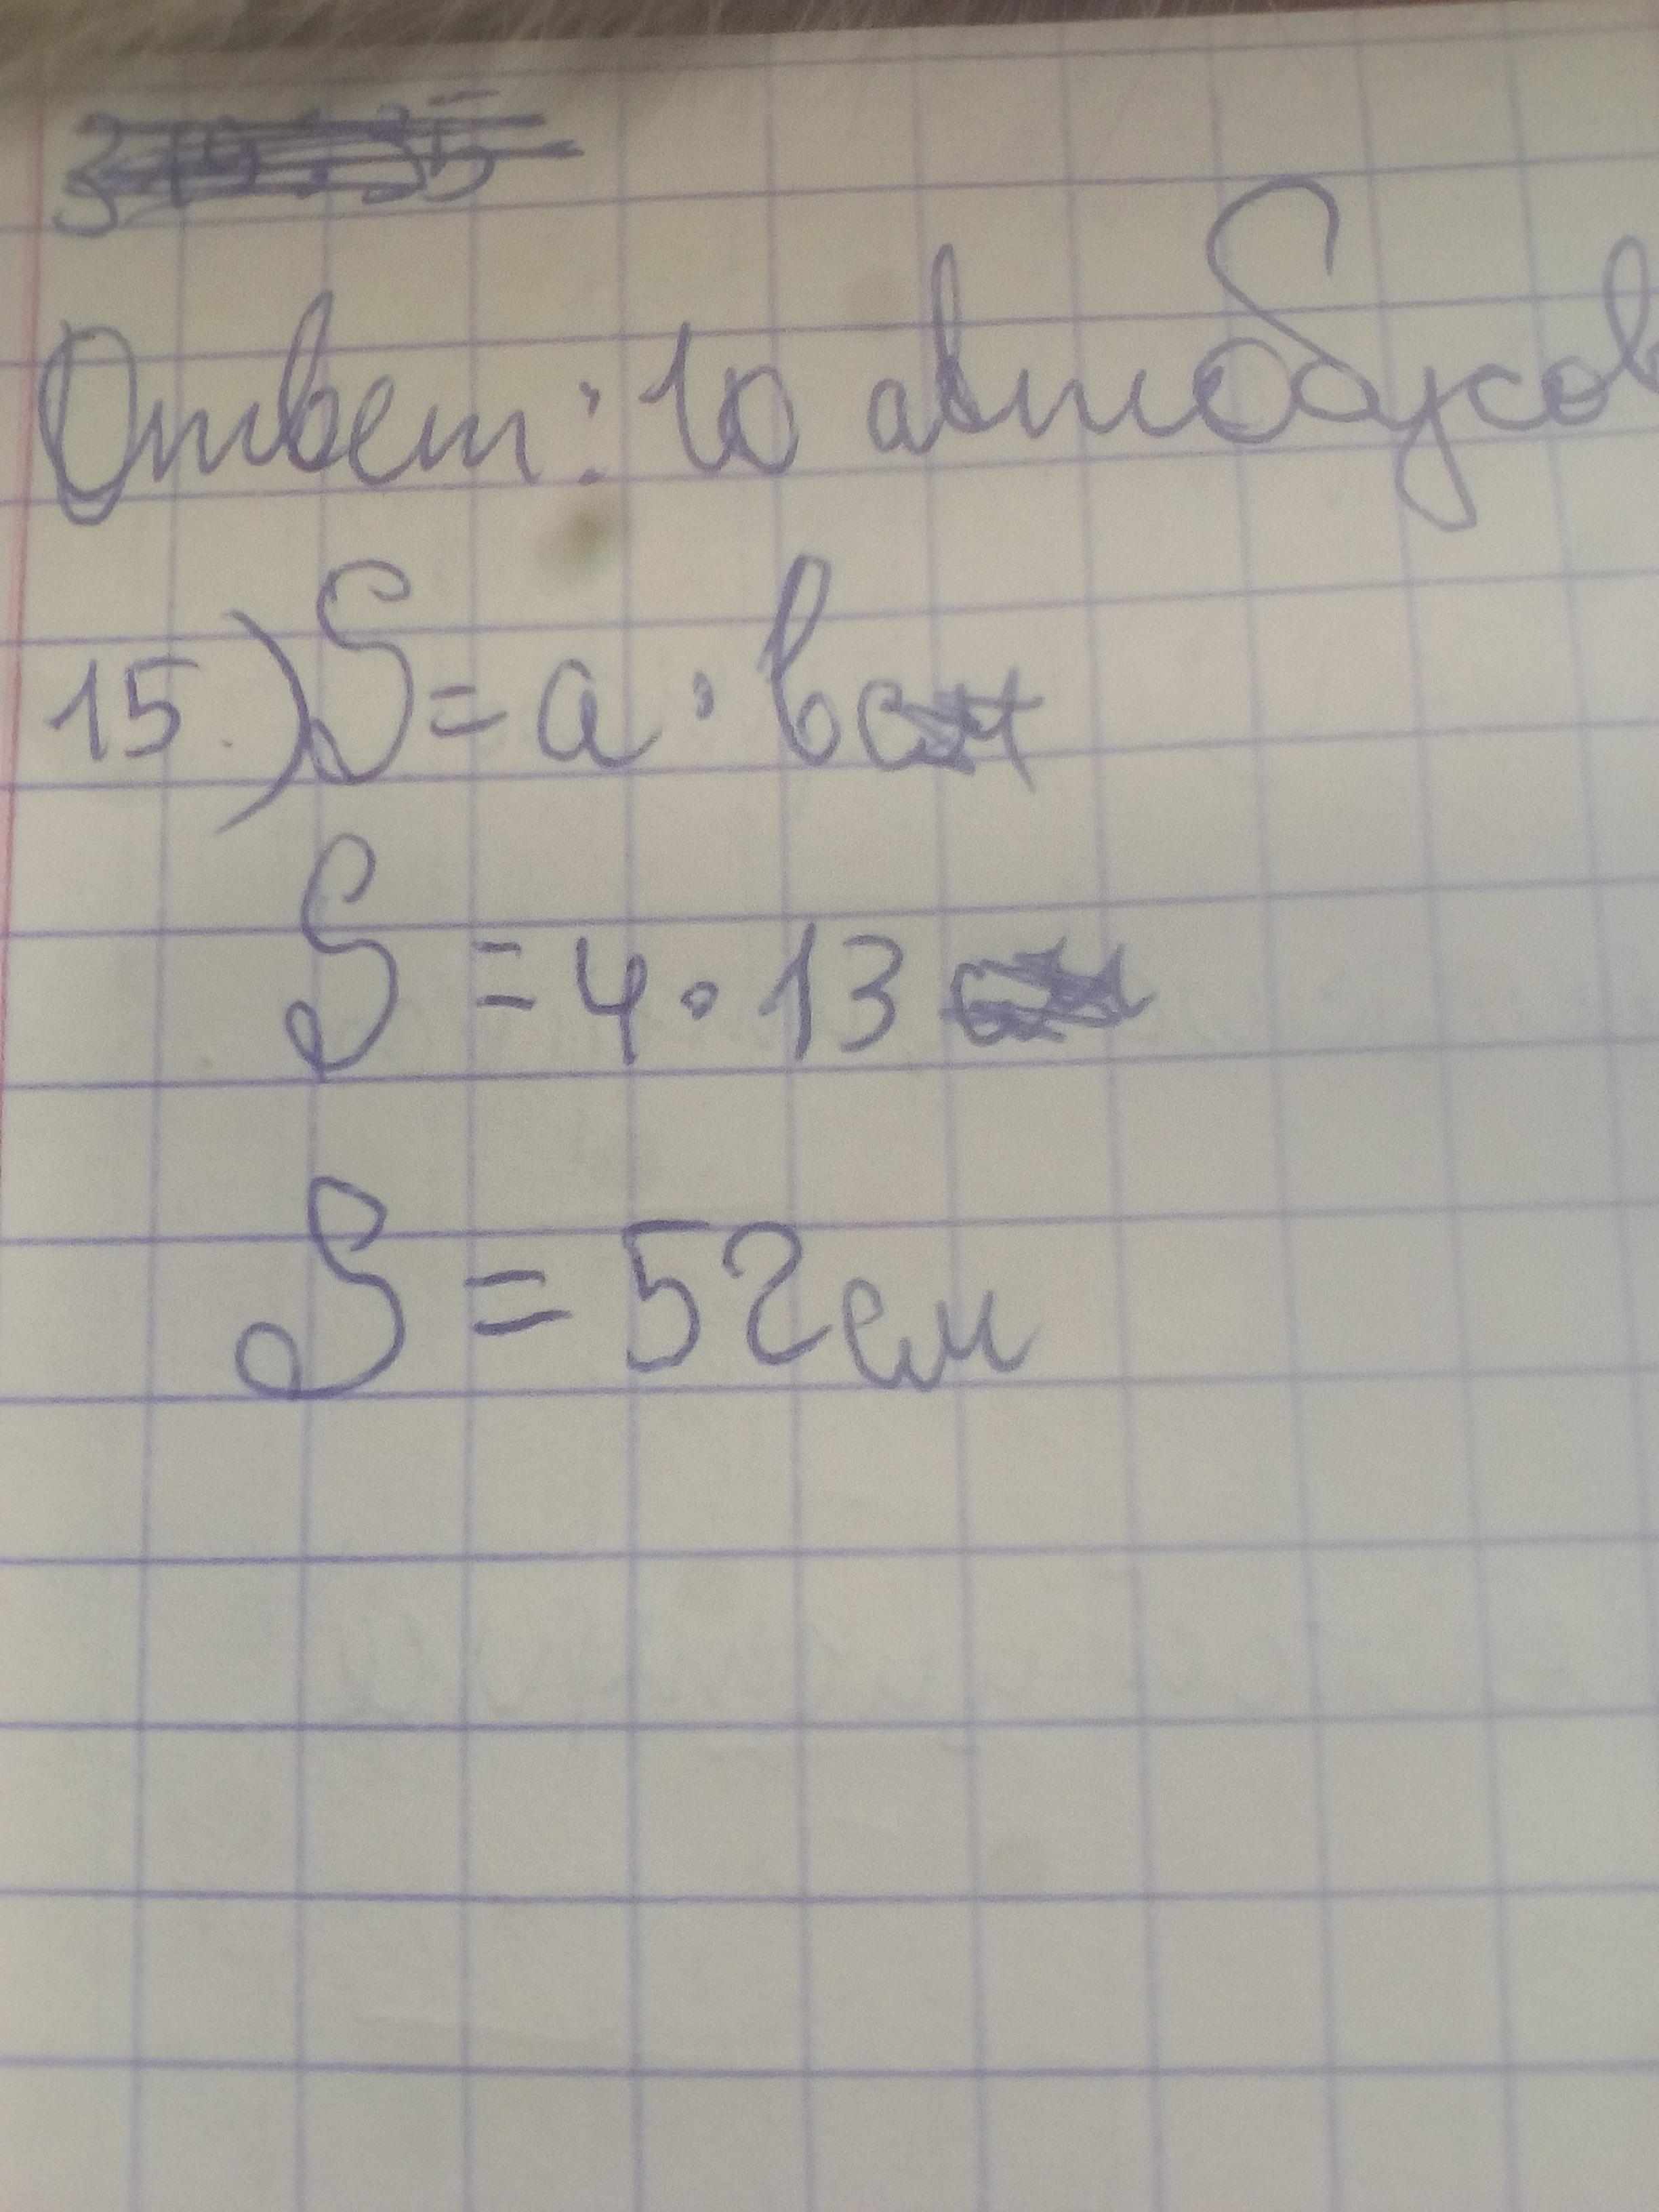 Ответ: 10 автобусов
15.) S = a · b
S = 4 · 13
S = 52 см